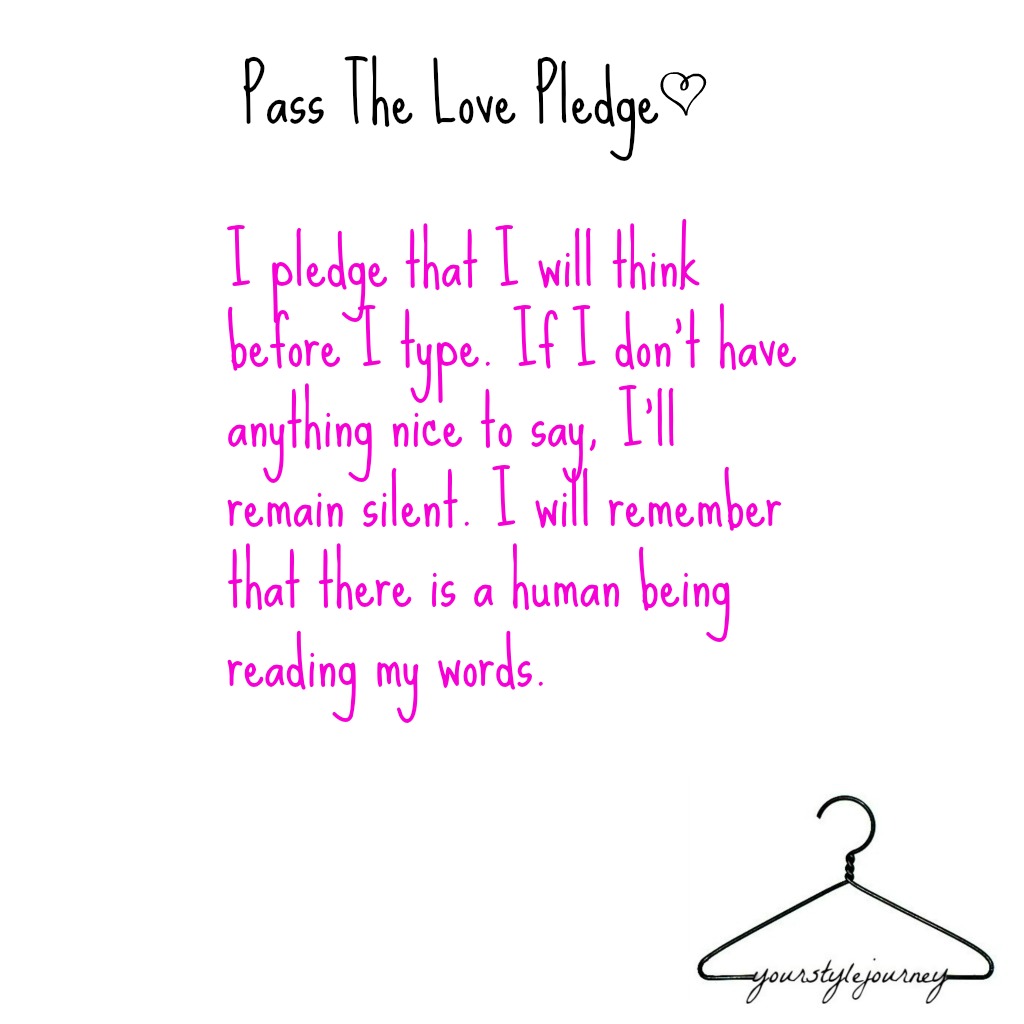 Pass The Love Pledge♡
I pledge that I will think
before I type. If I don't have
anything nice to say, I'll
remain silent. I will remember
that there is a human being
reading my words.
yourstylejourney